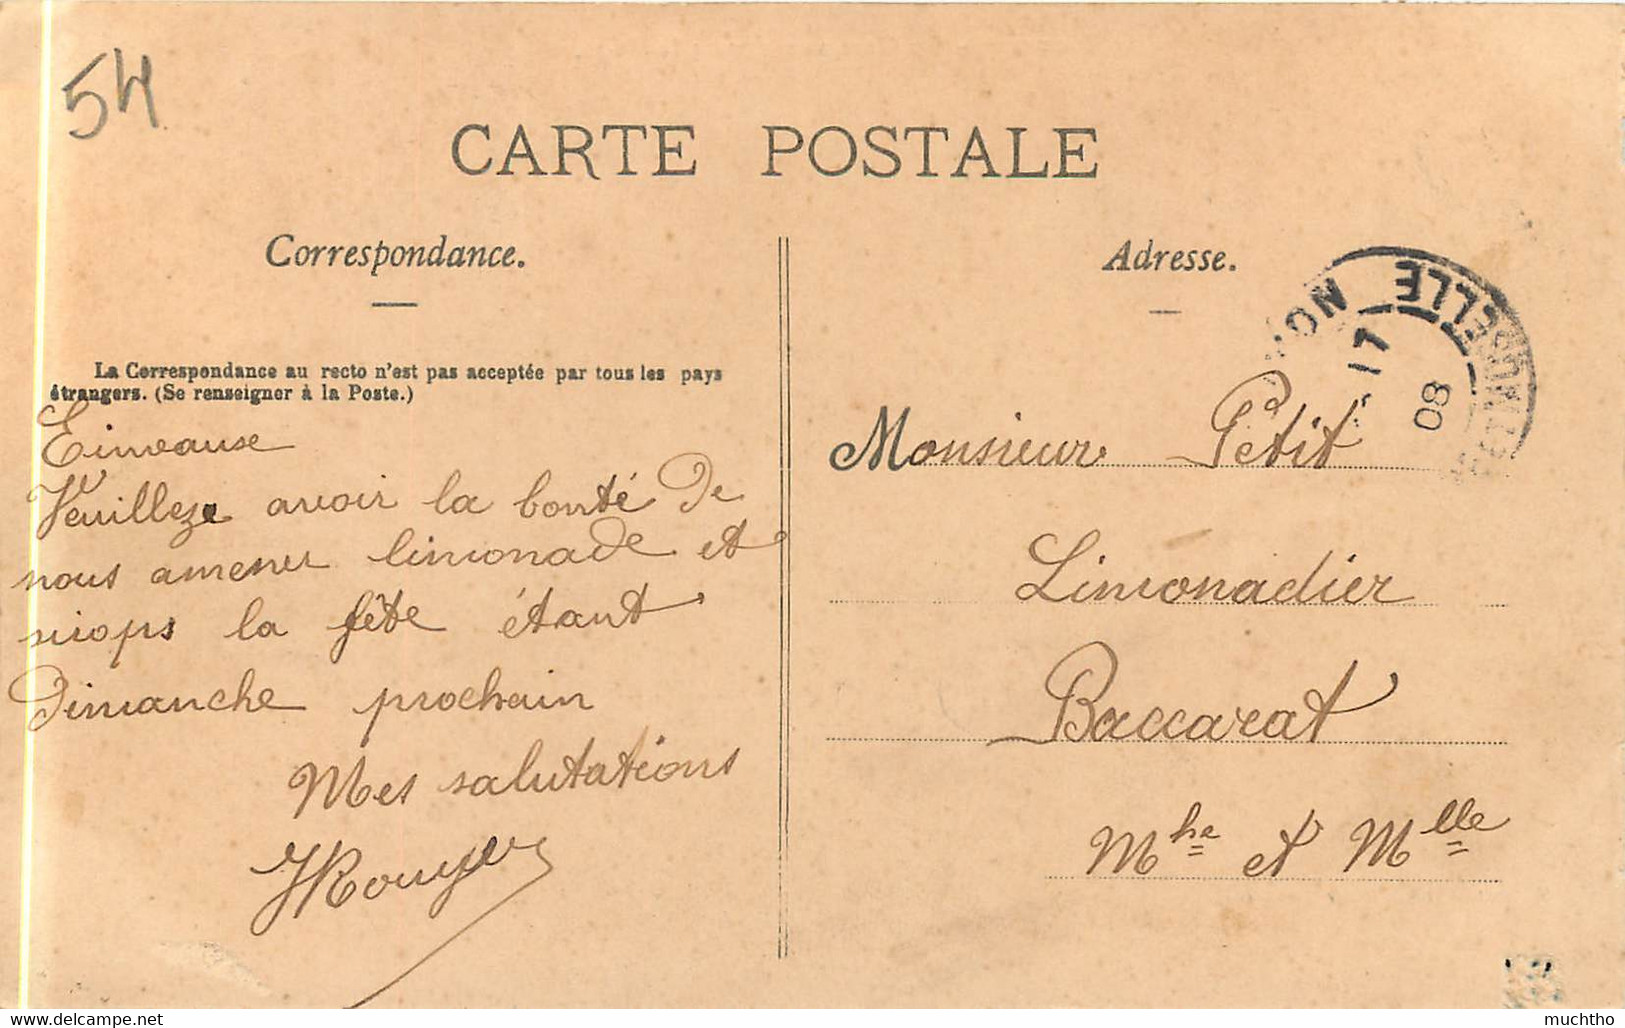 54
CARTE POSTALE
Correspondance.
La Correspondance au recto n'est pas acceptée par tous les pays
étrangers. (Se renseigner à la Poste.)
Einvause
Veuillez avoir la bonté de
nous amener limonade et
siops la fête étant
Dimanche prochain
Mes salutations
JRouyer
Adresse.
MEURTHE MOSELLE
17
08
Monsieur Petit
Limonadier
Baccarat
Mhe et Mlle
muchtho